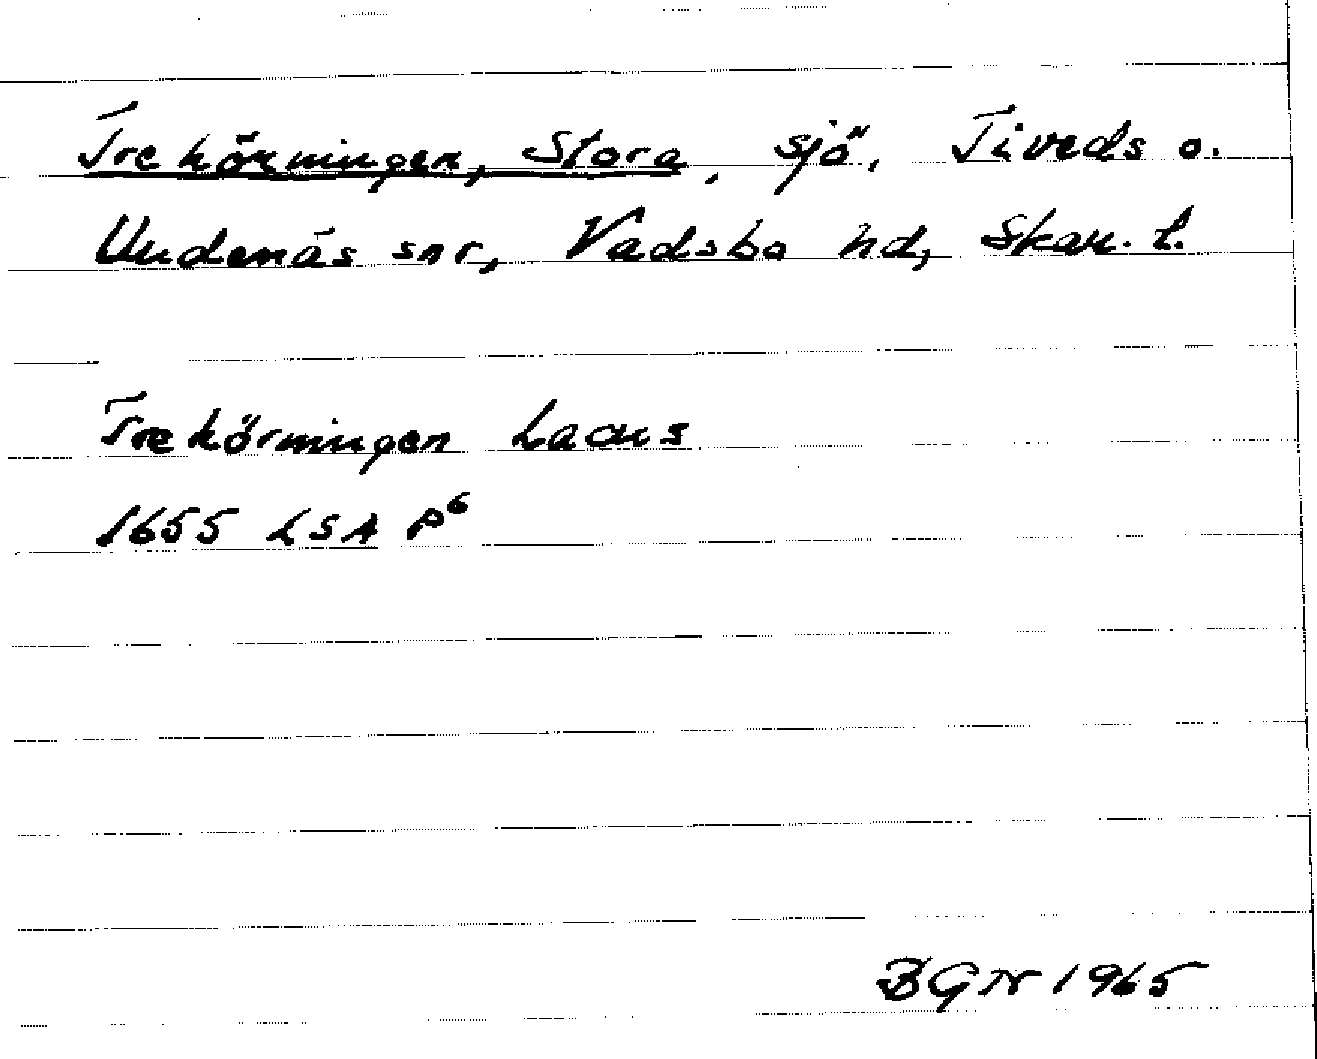 Trekörningen, Stora, sjö, Tiveds o.
Undenäs snr, Vadsbo hd, Skar. l.
Trekörmingen Lacus
1655 LSA P⁶
BGN 1965